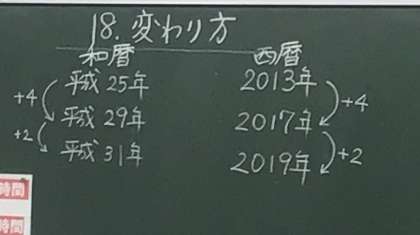 18.変わり方
和暦 西暦
平成25年 2013年
+4 +4
平成29年 2017年
+2 +2
平成31年 2019年
時間
時間